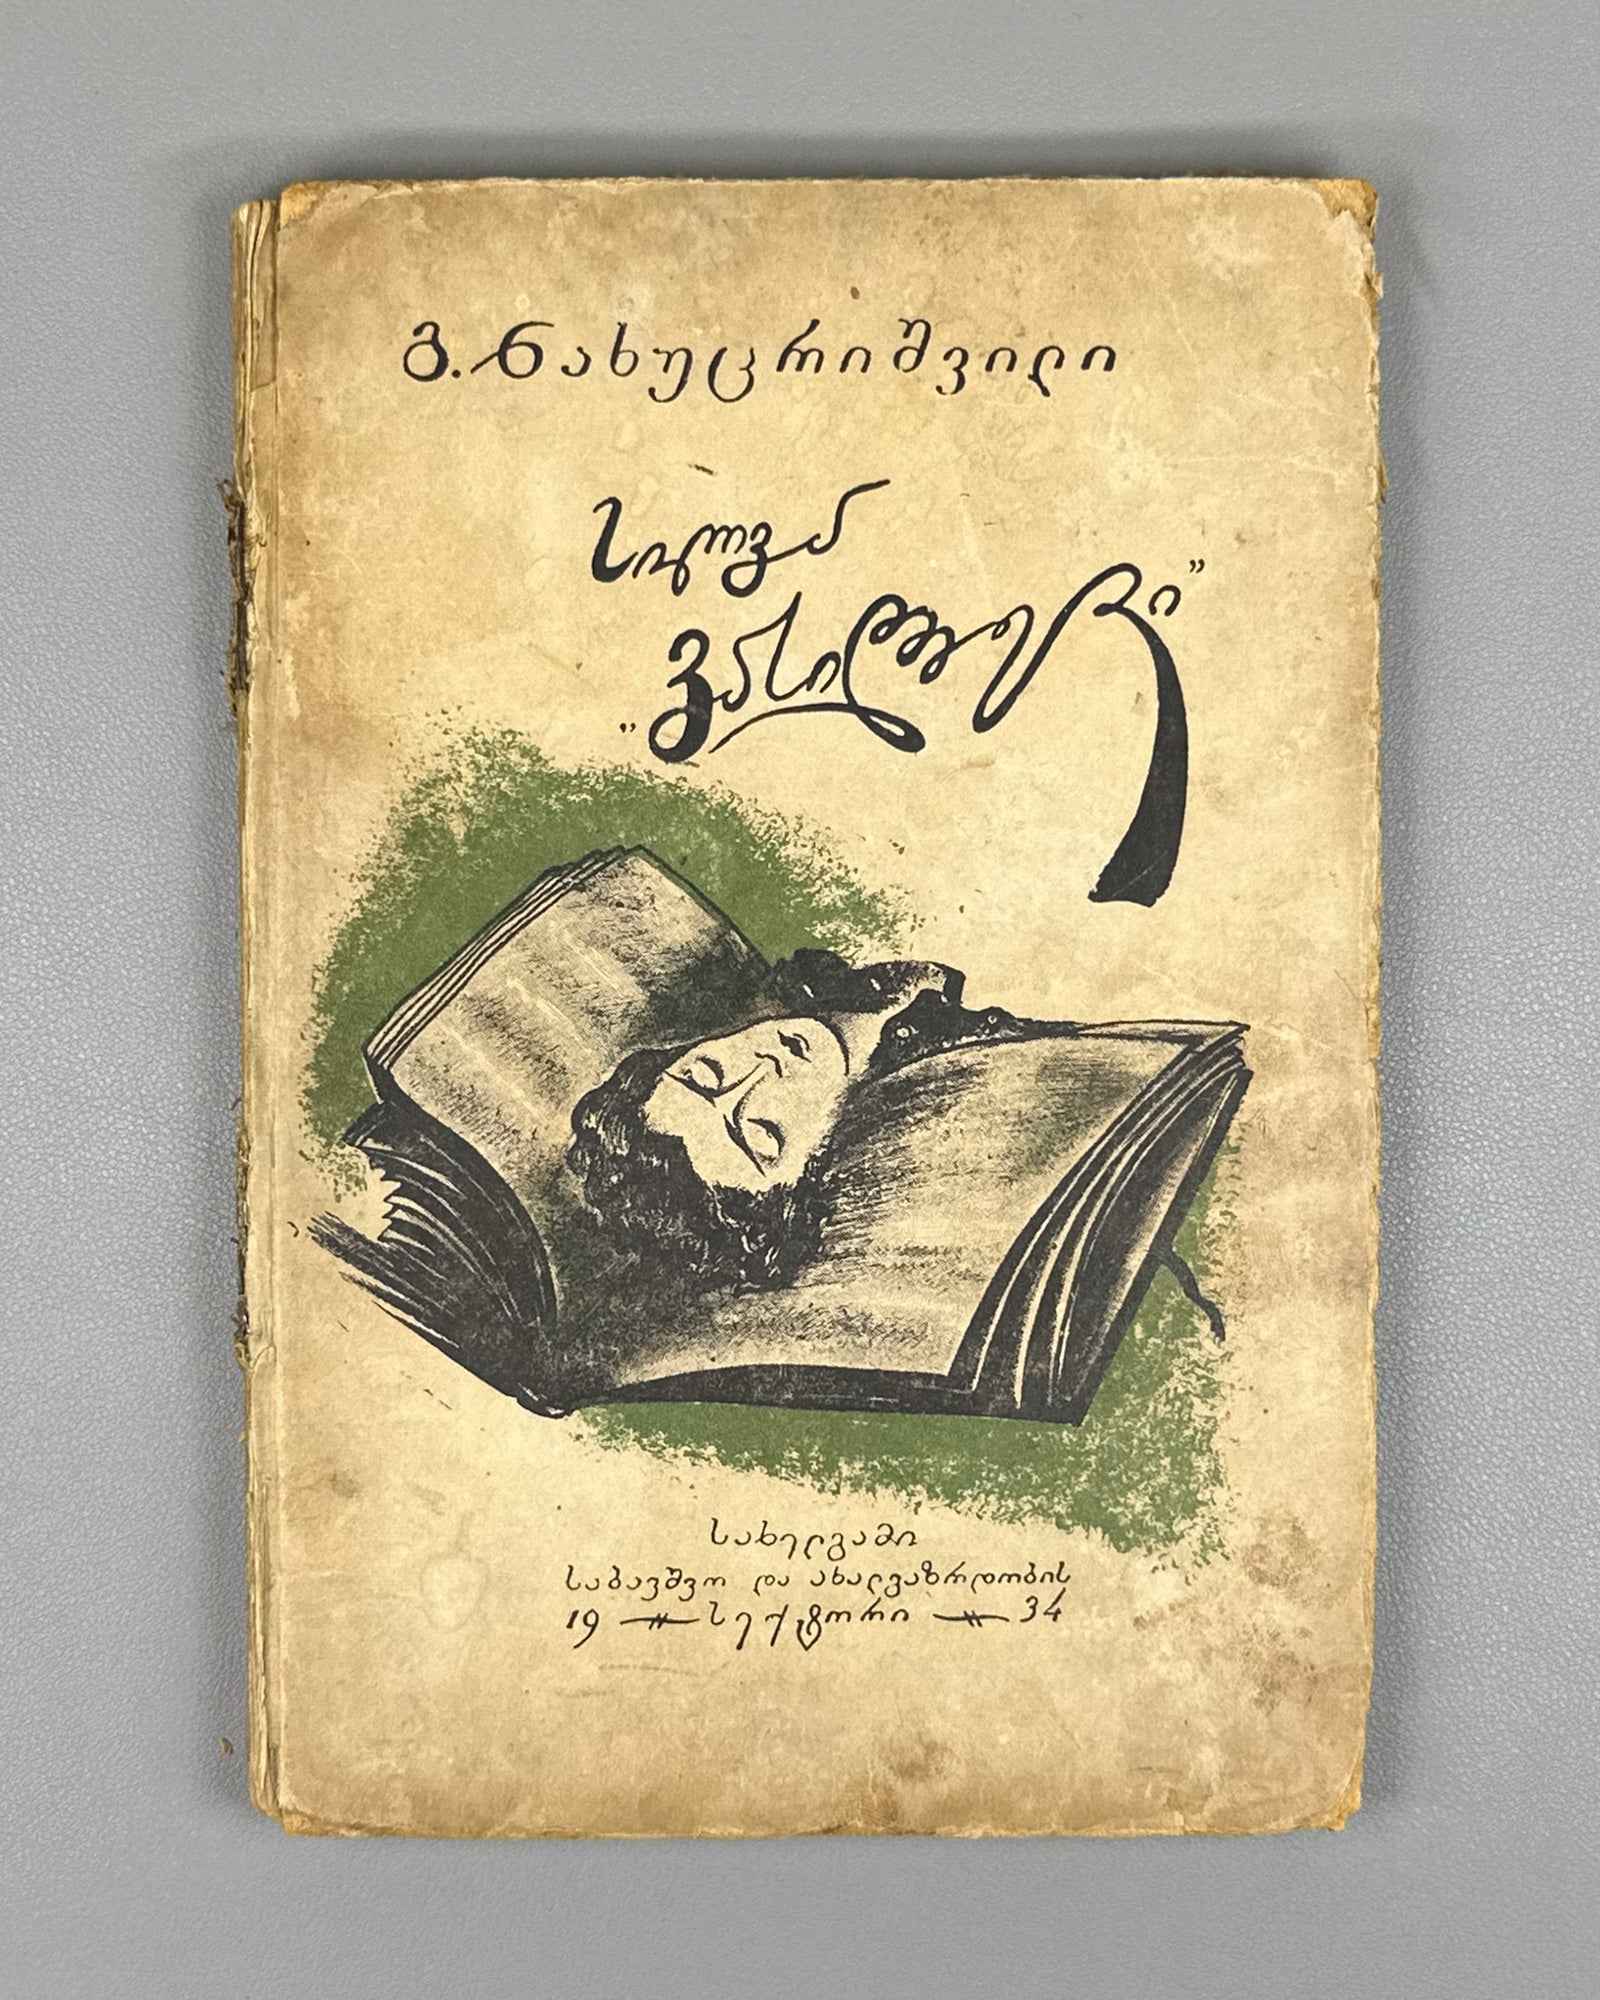 გ. ნახუცრიშვილი
სილვა
სახელგამი
საბავშვო და ახალგაზრდობის
19 სექტორი 34